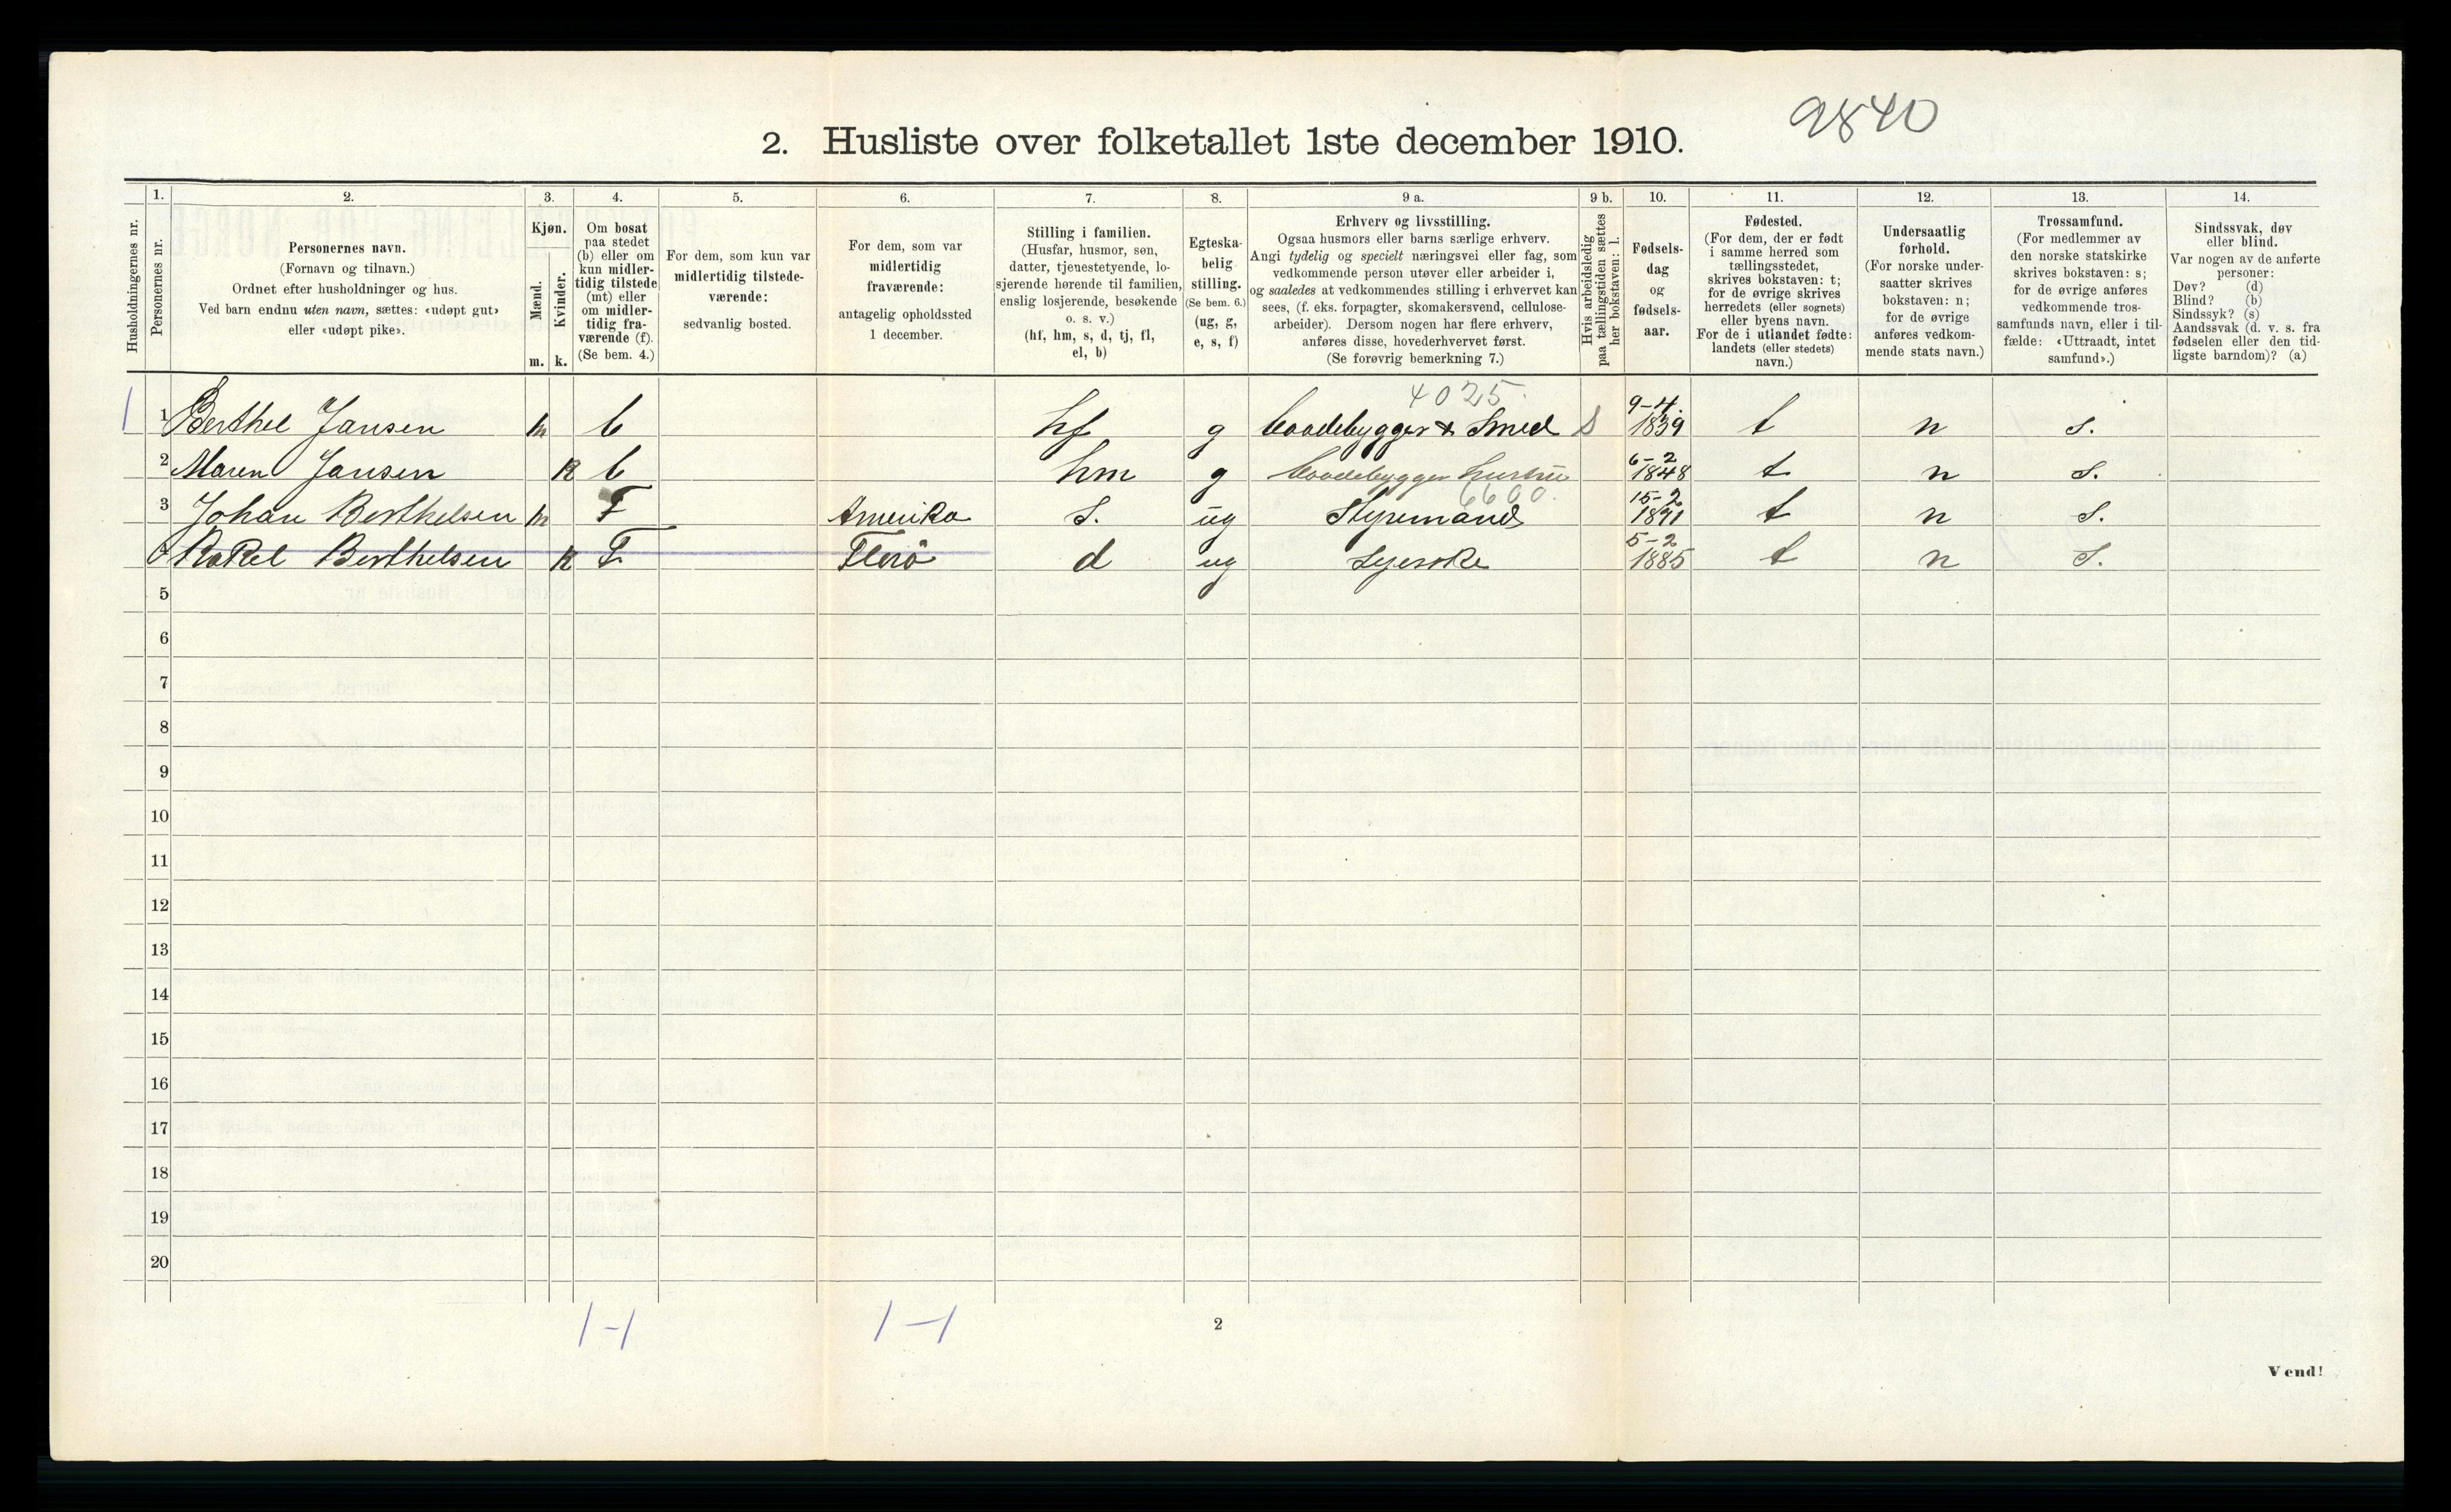 9840
2. Husliste over folketallet 1ste december 1910.
Husholdningernes nr.
1. Personernes nr.
2. Personernes navn.
(Fornavn og tilnavn.)
Ordnet efter husholdninger og hus.
Ved barn endnu uten navn, sættes: «udøpt gut»
eller «udøpt pike».
3. Kjøn.
Mænd. m.
Kvinder. k.
4. Om bosat
paa stedet
(b) eller om
kun midler-
tidig tilstede
(mt) eller
om midler-
tidig fra-
værende (f).
(Se bem. 4.)
5. For dem, som kun var
midlertidig tilstede-
værende:
sedvanlig bosted.
6. For dem, som var
midlertidig
fraværende:
antagelig opholdssted
1 december.
7. Stilling i familien.
(Husfar, husmor, søn,
datter, tjenestetyende, lo-
sjerende hørende til familien,
enslig losjerende, besøkende
o. s. v.)
(hf, hm, s, d, tj, fl,
el, b)
8. Egteska-
belig
stilling.
(Se bem. 6.)
(ug, g,
e, s, f)
9 a. Erhverv og livsstilling.
Ogsaa husmors eller barns særlige erhverv.
Angi tydelig og specielt næringsvei eller fag, som
vedkommende person utøver eller arbeider i,
og saaledes at vedkommendes stilling i erhvervet kan
sees, (f. eks. forpagter, skomakersvend, cellulose-
arbeider). Dersom nogen har flere erhverv,
anføres disse, hovederhvervet først.
(Se forøvrig bemerkning 7.)
9 b. Hvis arbeidsledig
paa tællingstiden sættes
her bokstaven: l.
10. Fødsels-
dag
og
fødsels-
aar.
11. Fødested.
(For dem, der er født
i samme herred som
tællingsstedet,
skrives bokstaven: t;
for de øvrige skrives
herredets (eller sognets)
eller byens navn.
For de i utlandet fødte:
landets (eller stedets)
navn.)
12. Undersaatlig
forhold.
(For norske under-
saatter skrives
bokstaven: n;
for de øvrige
anføres vedkom-
mende stats navn.)
13. Trossamfund.
(For medlemmer av
den norske statskirke
skrives bokstaven: s;
for de øvrige anføres
vedkommende tros-
samfunds navn, eller i til-
fælde: «Uttraadt, intet
samfund».)
14. Sindssvak, døv
eller blind.
Var nogen av de anførte
personer:
Døv? (d)
Blind? (b)
Sindssyk? (s)
Aandssvak (d. v. s. fra
fødselen eller den tid-
ligste barndom)? (a)
4025.
1 1 Berthel Jansen m b hf g baadebygger & Smed S 9-4. 1839 t n s.
2 Maren Jansen k b hm g baadebygger hustru 6-2 1848 t n s.
6600.
3 Johan Berthelsen m F Amerika s. ug Styrmand 15-2 t n s.
4 Rakel Berthelsen k F Florö d ug Syerske 5-2 1885 t n s.
5
6
7
8
9
10
11
12
13
14
15
16
17
18
19
20
1-1 1-1
2
Vend!